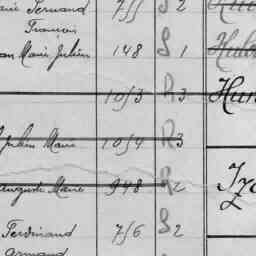 Fernand 7/5 S 2
François
Marie Julien 148 S 1
10/3 R 3 Hun
Julien Marie 10/4 R 3
Auguste Marie 948 R 2
Ferdinand 7/6 S 2
Armand